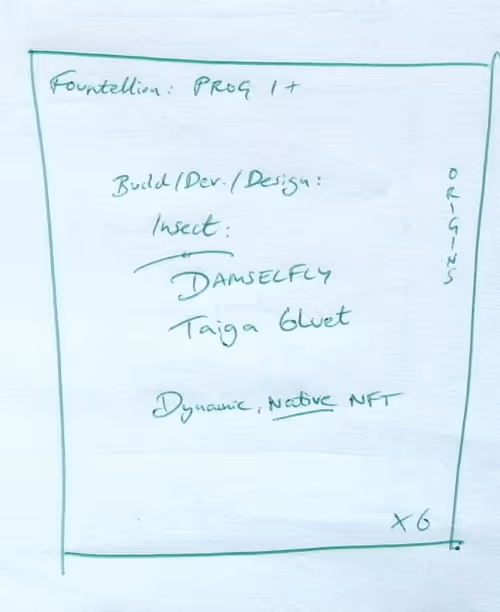 Fountellion: PROG 1+
Build/Dev./Design:
Insect:
DAMSELFLY
Taiga Bluet
Dynamic, Native NFT
ORIGINS
X6